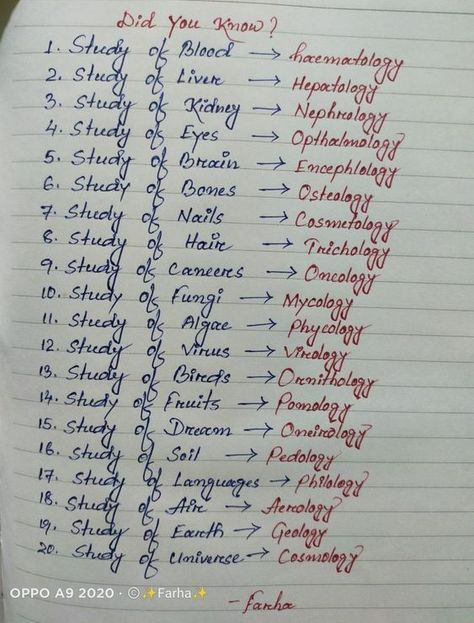 Did You Know?
1. Study of Blood → haematology
2. Study of Liver → Hepatology
3. Study of Kidney → Nephrology
4. Study of Eyes → Opthalmology
5. Study of Brain → Encephlology
6. Study of Bones → Osteology
7. Study of Nails → Cosmetology
8. Study of Hair → Trichology
9. Study of Cancers → Oncology
10. Study of Fungi → Mycology
11. Study of Algae → Phycology
12. Study of Virus → Virology
13. Study of Birds → Ornithology
14. Study of Fruits → Pomology
15. Study of Dream → Oneirology
16. Study of Soil → Pedology
17. Study of Languages → Philology
18. Study of Air → Aerology
19. Study of Earth → Geology
20. Study of Universe → Cosmology
- Farha
OPPO A9 2020 · © ✨Farha✨